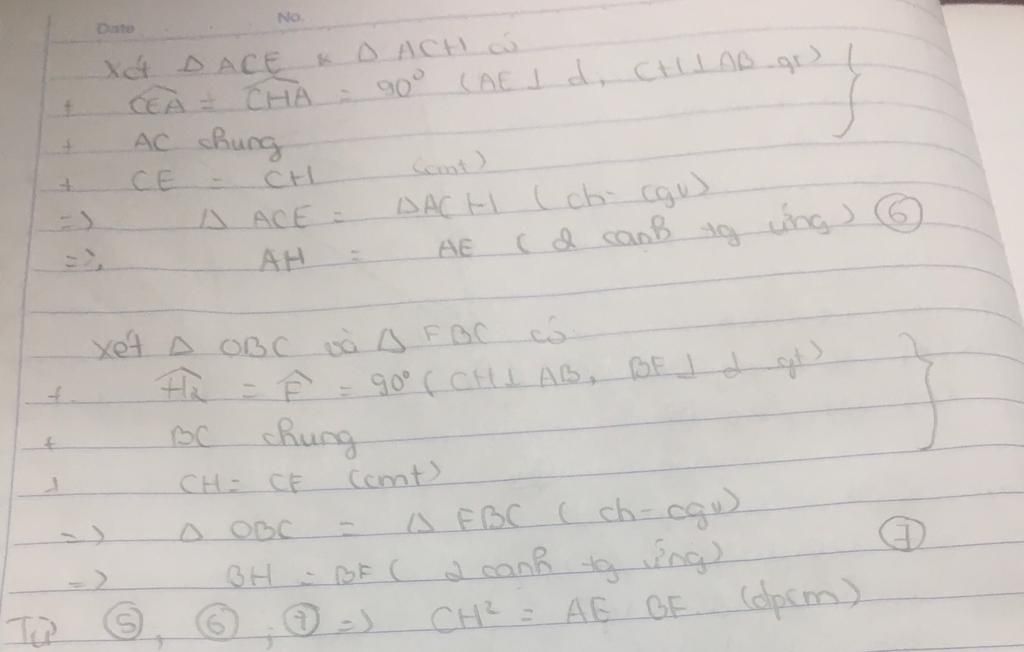 Date No.
Xét Δ ACE & Δ ACH có
+ CEA = CHA = 90° (AE ⊥ d, CH ⊥ AB gt)
+ AC chung
+ CE = CH (cmt)
=> Δ ACE = ΔACH (ch - cgv)
=> AH = AE (2 cạnh tg ứng) ⑥
xét Δ OBC và Δ FBC có
+ H₂ = F = 90° (CH ⊥ AB, BF ⊥ d gt)
+ BC chung
+ CH = CF (cmt)
=> Δ OBC = Δ FBC (ch - cgv)
=> BH = BF (2 cạnh tg ứng) ⑦
Từ ⑤, ⑥, ⑦ => CH² = AE BF (đpcm)